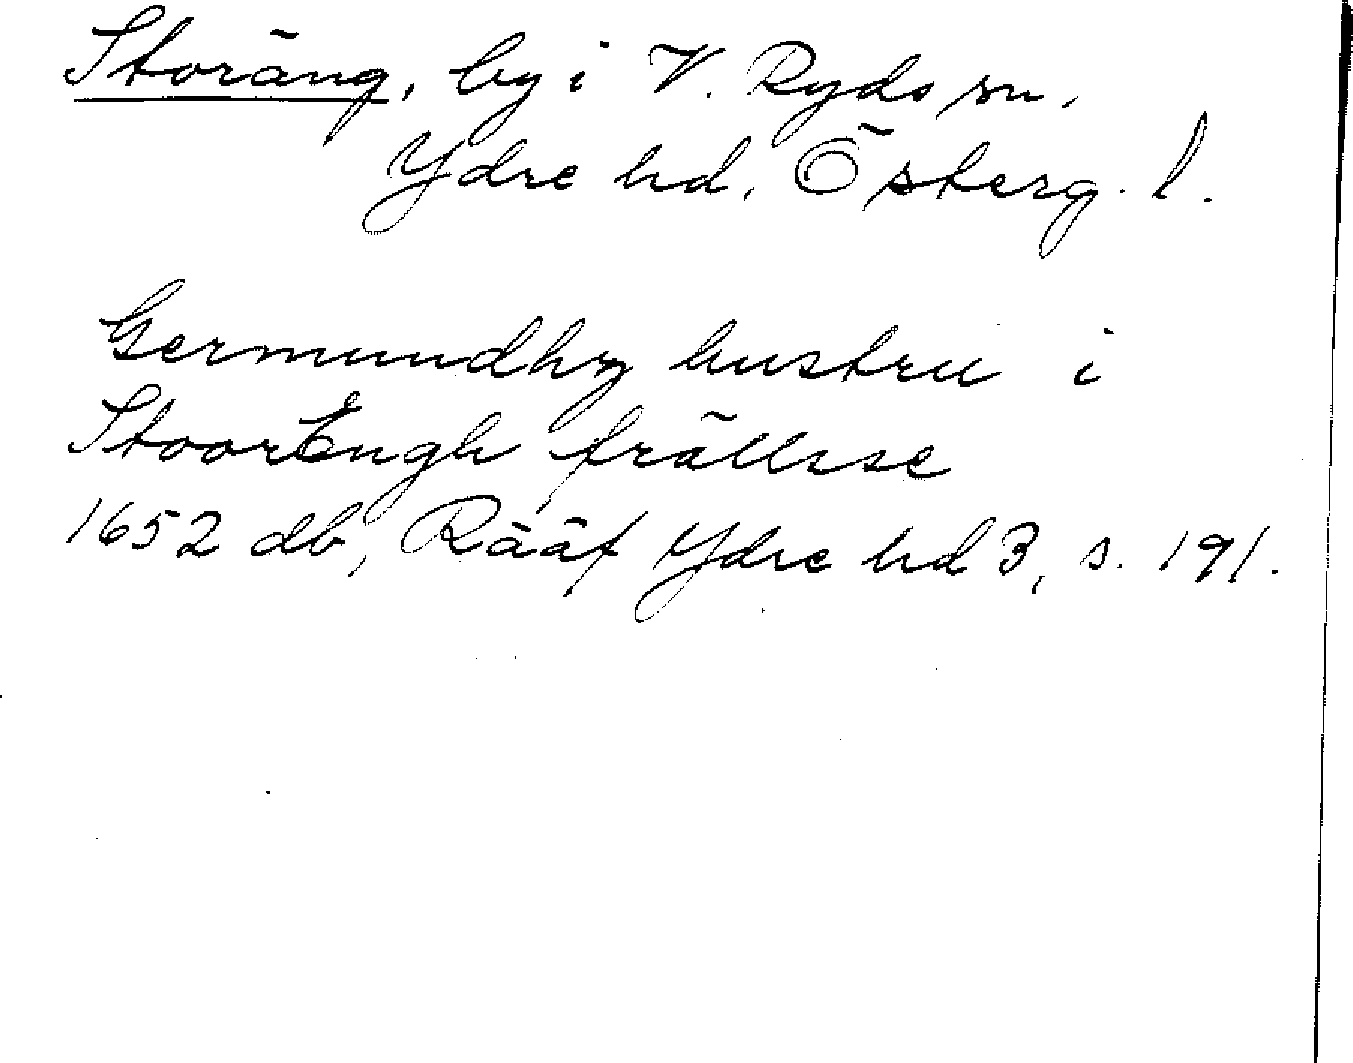 Storäng, by i V. Ryds sn.
Ydre hd. Österg. l.
Germundhz hustru i
StoorEngh frällsse
1652 db, Rääf Ydre hd 3, s. 191.